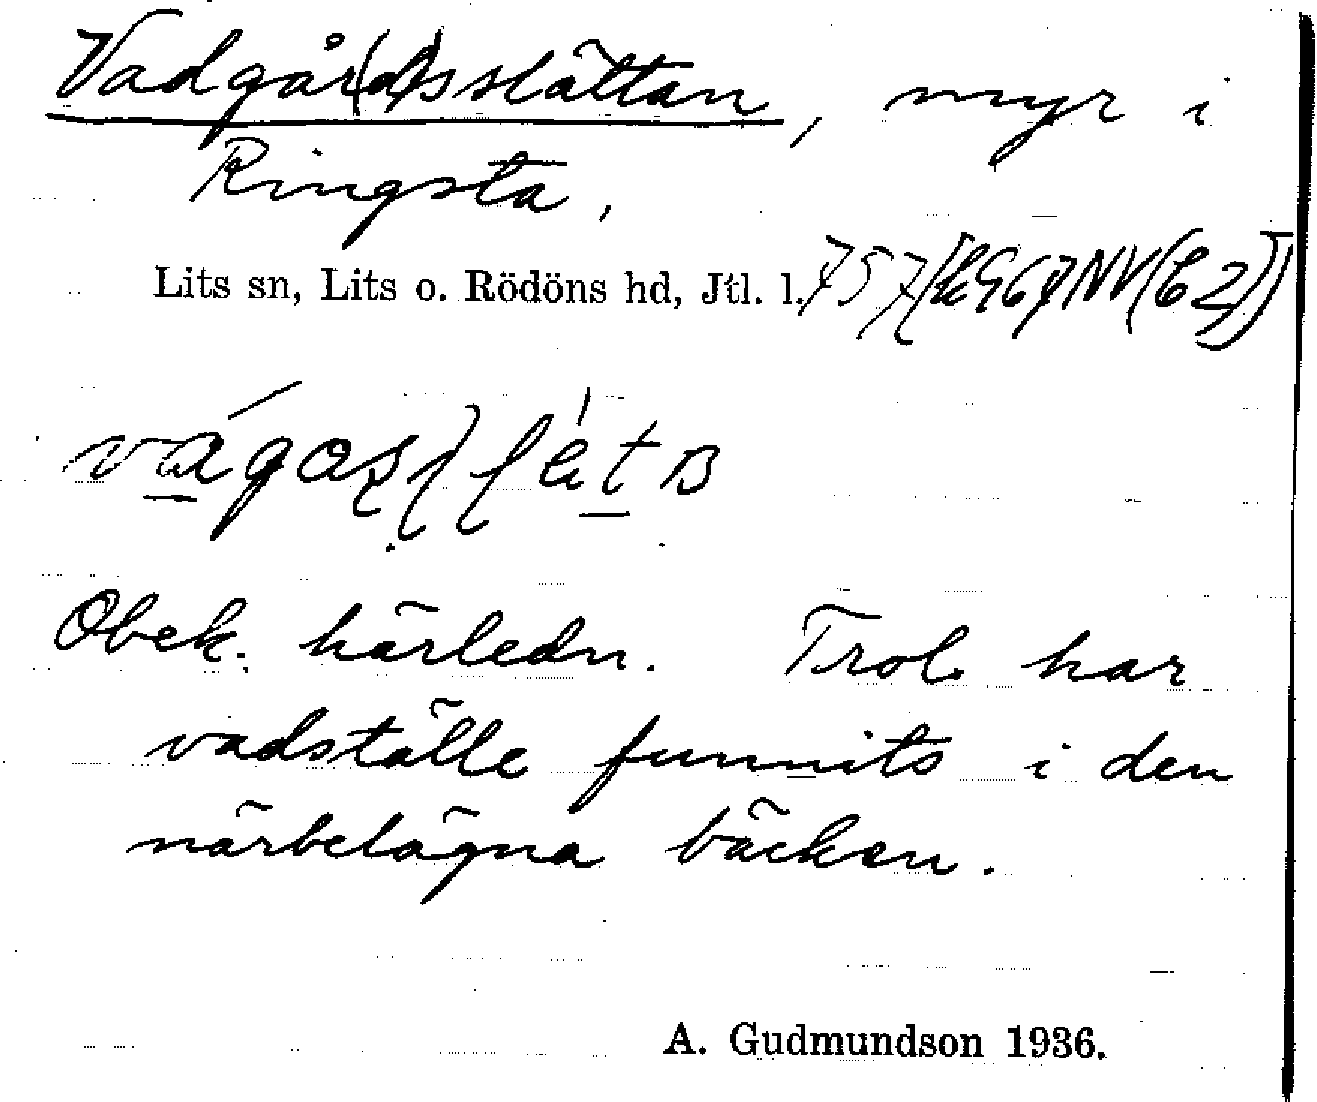 Vadgår(d)sslåttan, myr i
Ringsta,
Lits sn, Lits o. Rödöns hd, Jtl. l.
Obek. härledn. Trol. har
vadställe funnits i den
närbelägna bäcken.
A. Gudmundson 1936.